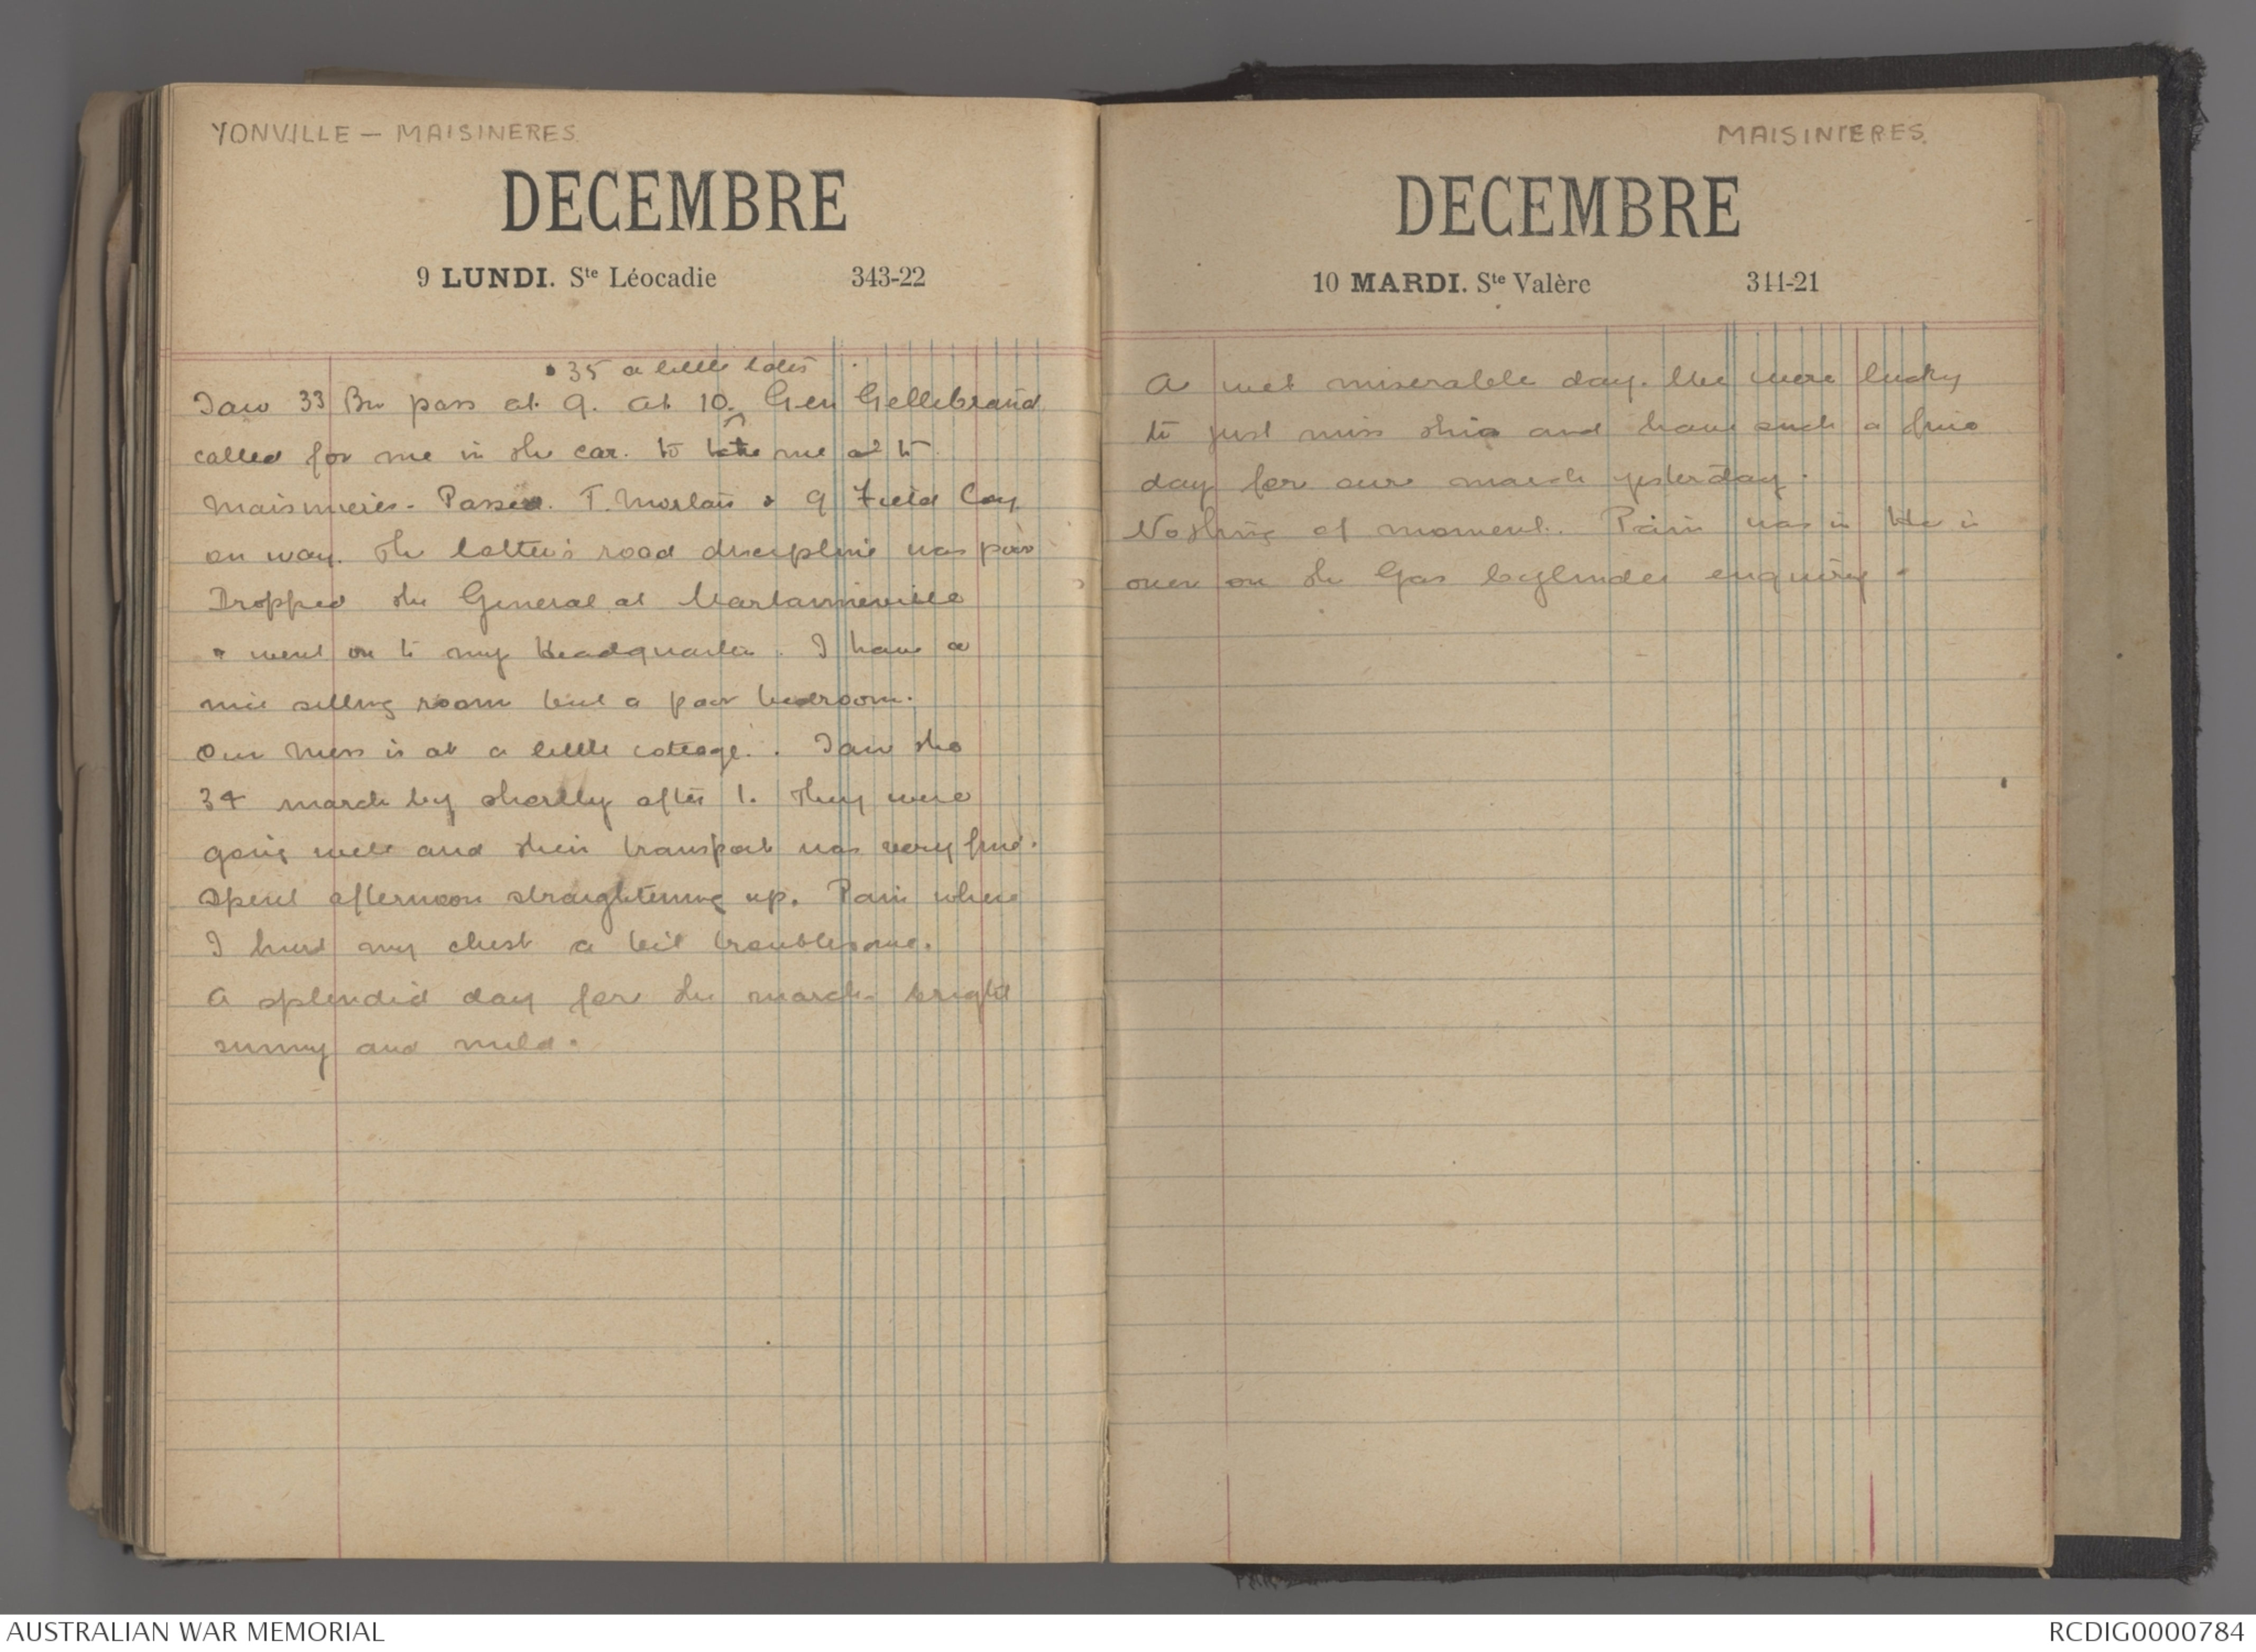 YONVILLE — MAISINERES.
DECEMBRE
9 LUNDI. Ste Léocadie 343-22
& 35 a little later
Saw 33 Bn pass at 9. At 10. Gen Gellibrand
called for me in the car. to take me to
Maisnieres. Passed T. Mortars & 9 Field Coy
on way. The latter's road discipline was poor
Dropped the General at Martainneville
& went on to my Headquarters. I have a
nice sitting room but a poor bedroom.
Our Mess is at a little cottage. Saw the
34 march by shortly after 1. They were
going well and their transport was very fine.
Spent afternoon straightening up. Pain where
I hurt my chest a bit troublesome.
A splendid day for the march - bright
sunny and mild.
MAISINIERES.
DECEMBRE
10 MARDI. Ste Valère 344-21
A wet miserable day. We were lucky
to just miss this and have such a fine
day for our march yesterday.
Nothing of moment. Pain was in He is
over on the Gas Cylinder enquiry.
AUSTRALIAN WAR MEMORIAL
RCDIG0000784